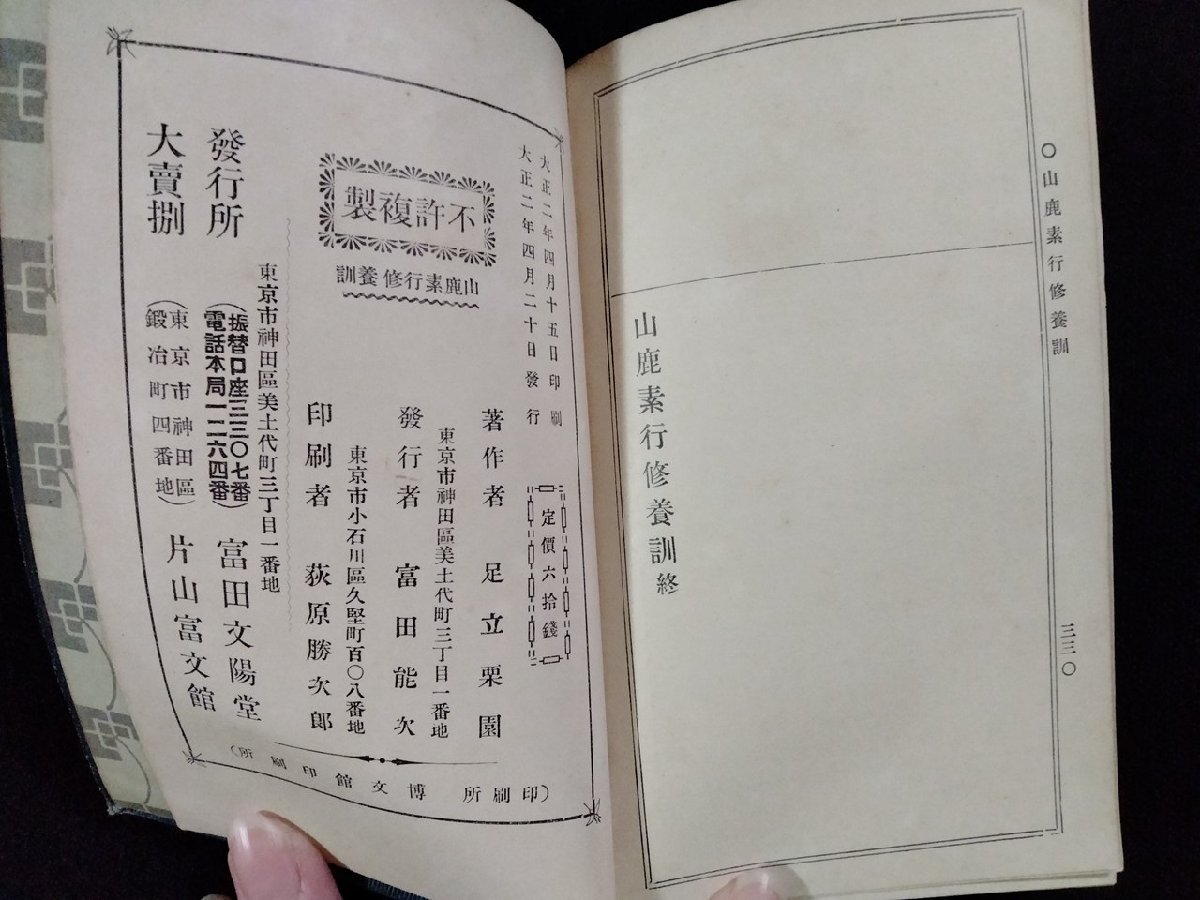 〇山鹿素行修養訓
三三〇
山鹿素行修養訓終
大正二年四月十五日印刷
大正二年四月二十日發行
定價六拾錢
不許複製
山鹿素行修養訓
著作者 足立栗園
東京市神田區美土代町三丁目一番地
發行者 富田能次
東京市小石川區久堅町百〇八番地
印刷者 荻原勝次郎
(印刷所 博文館印刷所)
東京市神田區美土代町三丁目一番地
發行所 (振替口座二三三〇七番 電話本局一二六四番) 富田文陽堂
大賣捌 (東京市神田區 鍛冶町四番地) 片山富文館